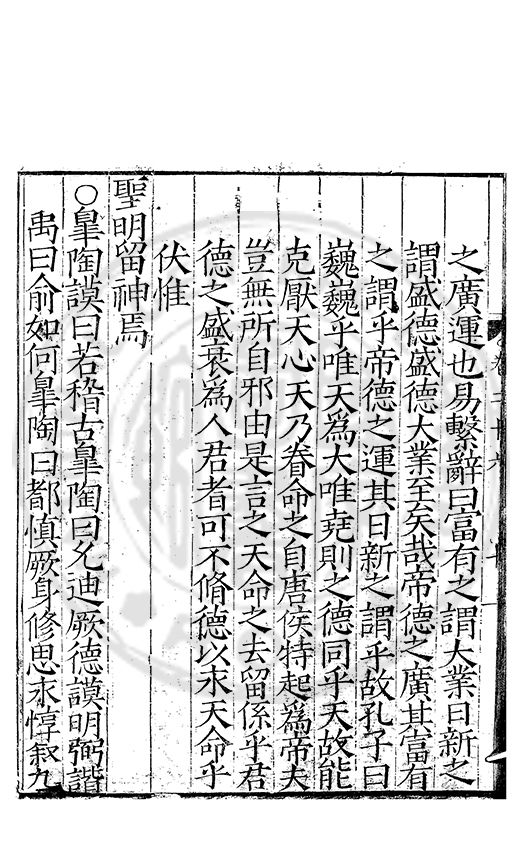 之廣運也易繫辭曰富有之謂大業日新之
謂盛德盛德大業至矣哉帝德之廣其富有
之謂乎帝德之運其日新之謂乎故孔子曰
巍巍乎唯天爲大唯堯則之德同乎天故能
克厭天心天乃眷命之自唐侯特起爲帝夫
豈無所自邪由是言之天命之去留係乎君
德之盛衰爲人君者可不脩德以求天命乎
伏惟
聖明留神焉
○臯陶謨曰若稽古臯陶曰允迪厥德謨明弼諧
禹曰俞如何臯陶曰都愼厥身修思永惇敘九